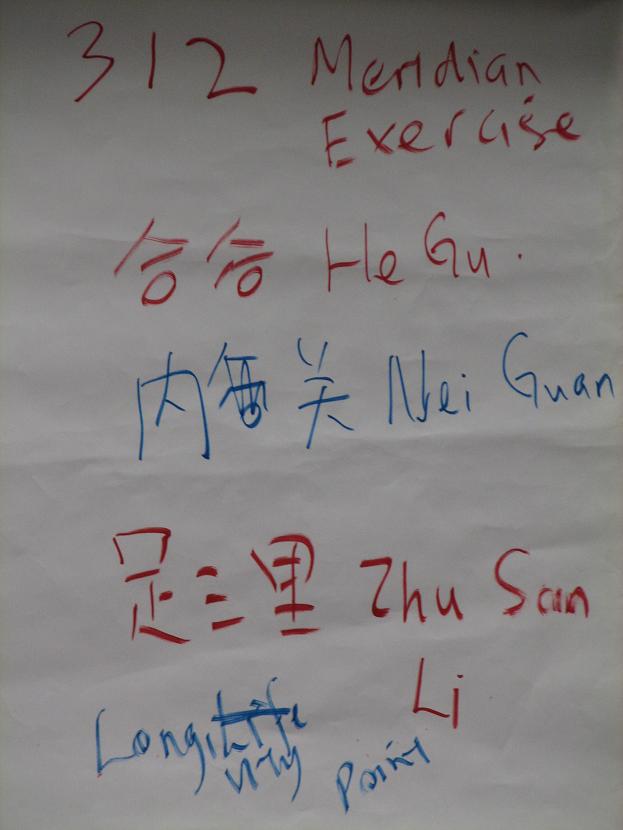 312 Meridian
Exercise
合合 He Gu.
内关 Nei Guan
足三里 Zhu San
Li
Longi
vity Point